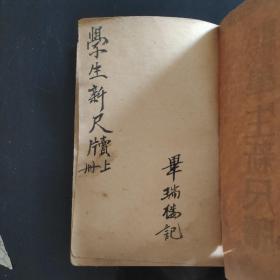 學生新尺牘上冊
畢瑞鴻記